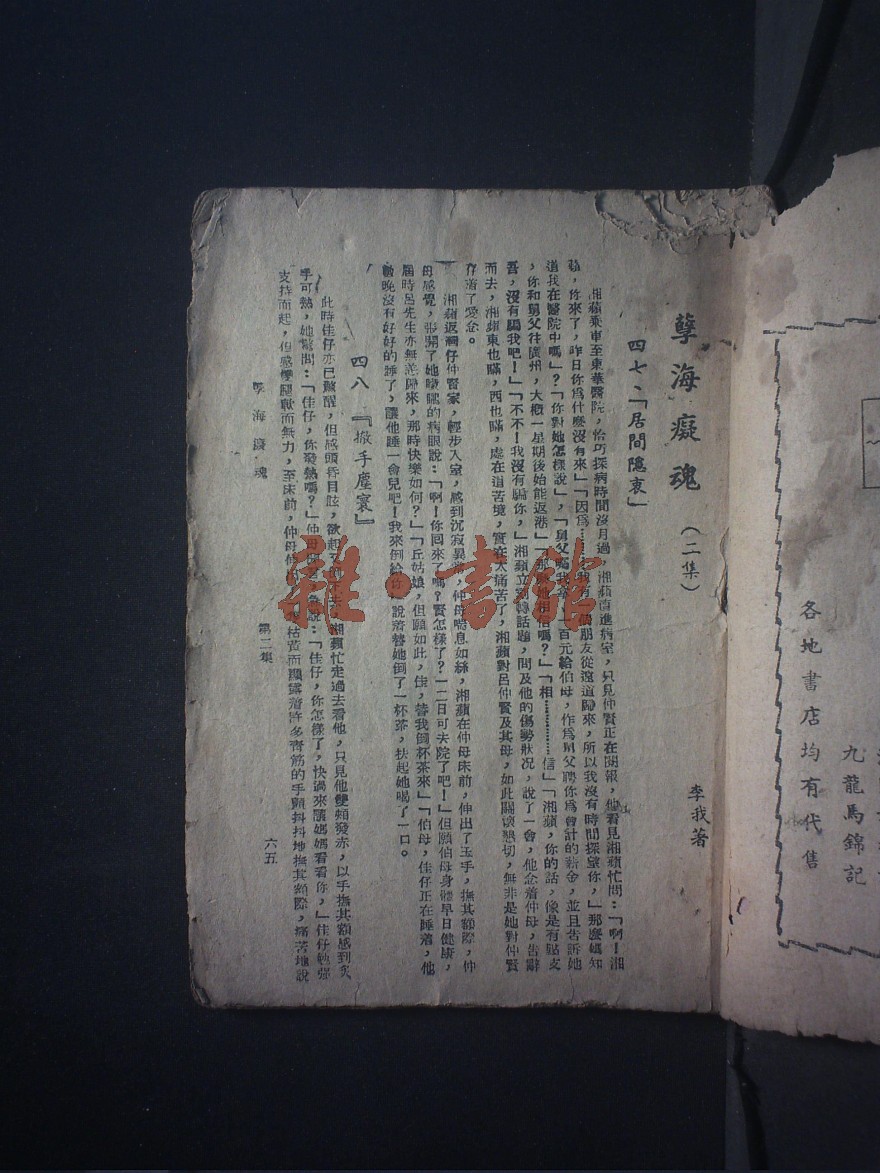 各地書店均有代售
九龍馬錦記
孽海癡魂(二集)
李我著
四七、「居間隱衷」
湘蘋乘車至東華醫院,恰巧探病時間沒月過,湘蘋直進病室,只見仲賢正在閱報,他看見湘蘋忙問:「啊!湘
蘋,你來了,昨日你爲什麼沒有來」「因爲…朋友從遠道歸來,所以我沒有時間探望你,」「那麼媽知
道我在醫院中嗎」?「你對她怎樣說」,「舅父囑我百元給伯母,作爲舅父聘你爲會計的薪金,並且告訴她
,你和舅父往廣州,大概一星期後始能返港」「那麼她相信嗎?」「相……………信」「湘蘋,你的話,像是有點支
吾,沒有騙我吧!」「不不!我沒有騙你,」湘蘋立客轉話題,問及他的傷勢狀况,說了一會,他念着仲母,告辭
而去,湘蘋東也瞞,西也瞞,處在這苦境,實在太痛苦了,湘蘋對呂仲賢及其母,如此關懷懇切,無非是她對仲賢
存着了愛念。
湘蘋返灣仔仲賢家,輕步入室,感到沉寂異常,仲母喘息如絲,湘蘋在仲母床前,伸出了玉手,撫其額際,仲
母感覺,張開了她朦朧的病眼說:「啊!你回來了嗎?賢怎樣了?」「二日可去院了吧!」但願伯母身體早日健康,
屆時呂先生亦無恙歸來,那時快樂如何?」「丘姑娘,但願如此,佳,替我倒杯茶來」「伯母,佳仔正在睡着,他
數晚沒有好好的睡了,讓他睡一會兒吧!我來倒給你」說着替她倒了一杯茶,扶起她喝了一口。
四八 『撤手塵寰』
此時佳仔亦已驚醒,但感頭昏目眩,欲起,湘蘋忙走過去看他,只見他雙頰發赤,以手撫其額感到炙
手可熱,她驚問:「佳仔,你發熱嗎?」仲母說:「佳仔,你怎樣了,快過來讓媽媽看看你,」佳仔勉强
支持而起,但感雙腿軟而無力,至床前,仲母伸枯黃而顯露着許多青筋的手顫抖抖地撫其額際,痛苦地說
孽海癡魂 第二集 六五
雜·書館